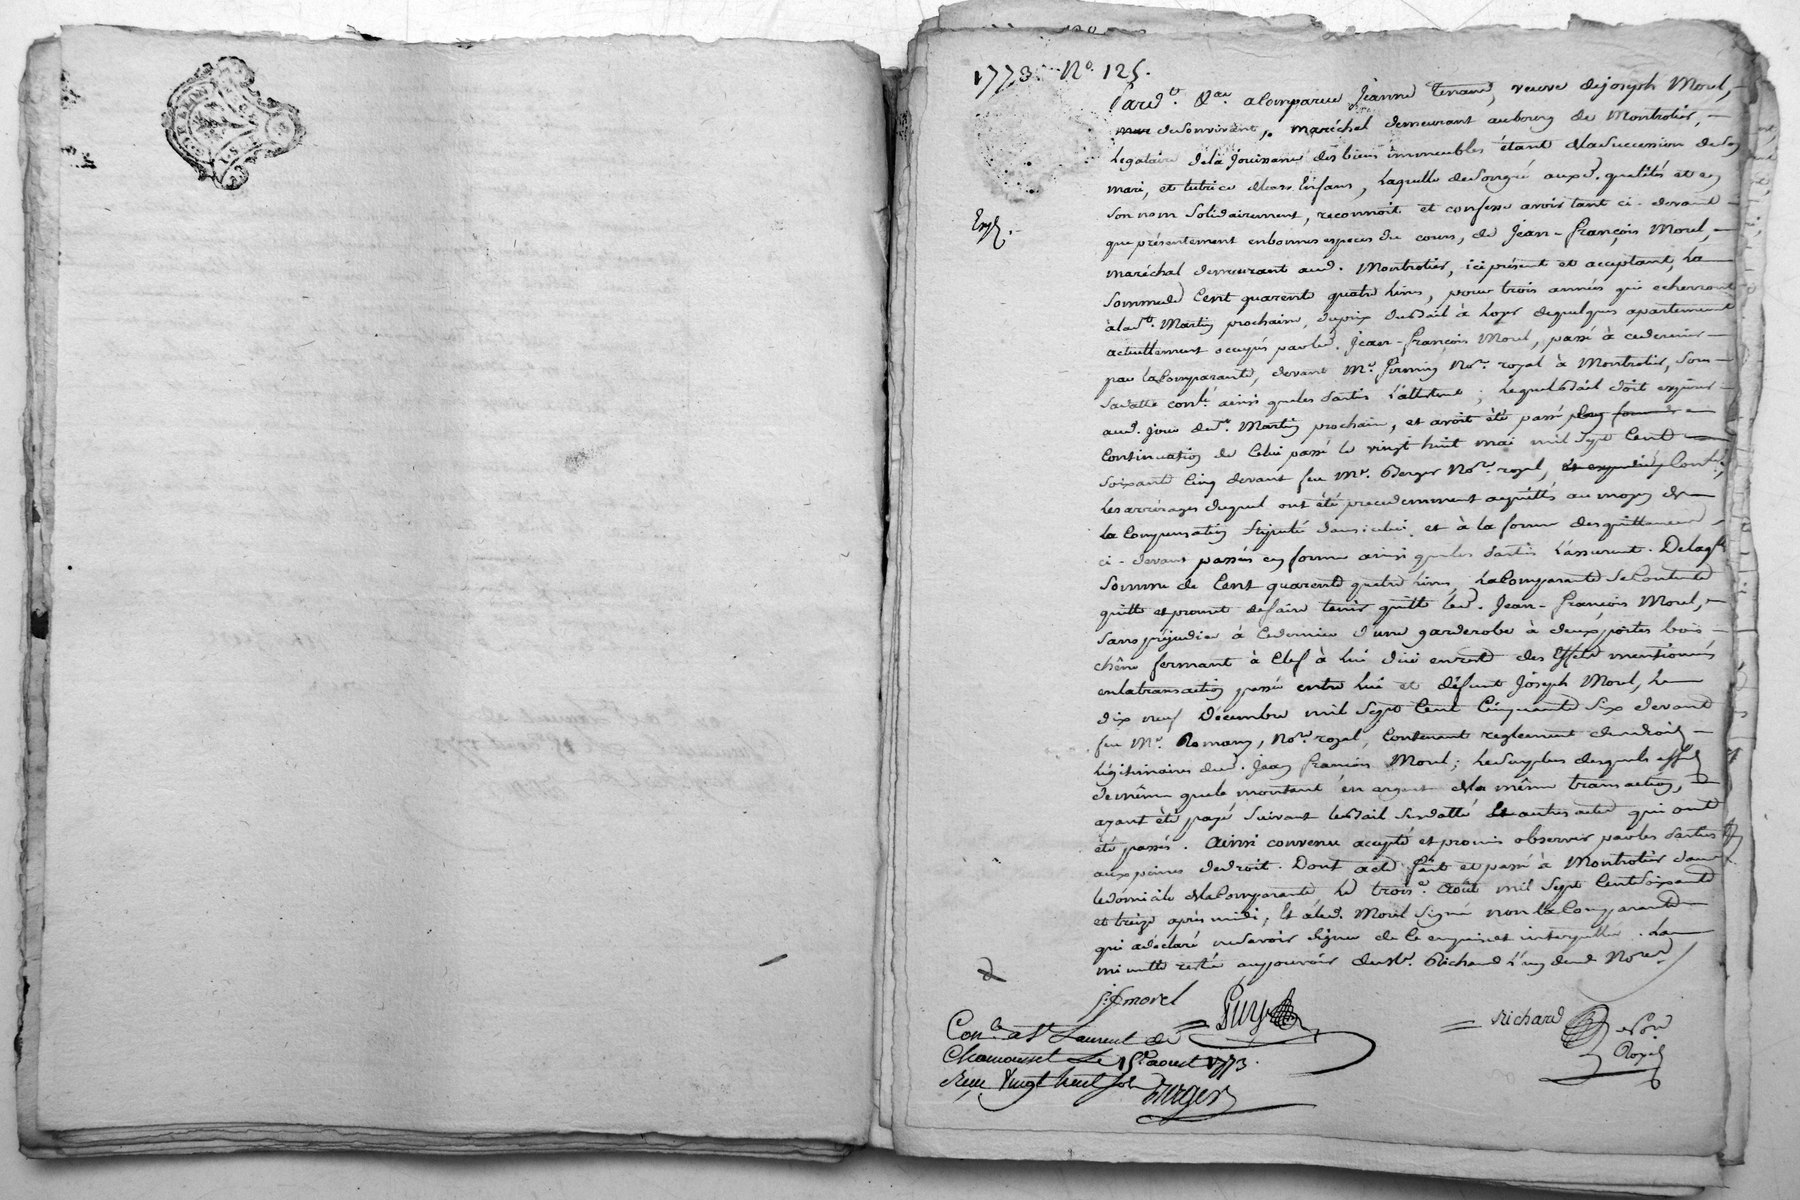 1773 N.º 125.
Pard.t &.ce a Comparue Jeanne Tenand, veuve de joseph Morel,
de son vivant, maréchal demeurant au bourg de Montrotier,
Legataire de la jouissance des biens immeubles étant de la succession de son
mari, et tutrice de leurs Enfans, Laquelle de son gré aux d. qualités et en
son nom solidairement, reconnoit et confesse avoir tant ci-devant
Exp.
que présentement en bonnes especes du cours, de Jean-françois Morel,
maréchal demeurant aud. Montrotier, ici présent et acceptant, La
somme de Cent quarente quatre Livres, pour trois années qui echerront
à la St. Martin prochaine, du prix du Bail à Loyer de quelques apartements
actuellement occupés par led. Jean-françois Morel, passé à ce dernier
par la Comparante, devant Me. firmin No.re royal à Montrotier, sous
sa datte conlé ainsi que les Parties L'attestent ; Lequel Bail doit expirer
aud. jour de St. Martin prochain, et avoit été passé en
Continuation de Celui passé le vingt huit mai mil sept Cent
soixante Cinq devant feu Me. Berger No.re royal, Conlé,
Les arrérages duquel ont été precedemment acquittés au moyen de
la Compensation stipulée dans icelui et à la forme des quittances
ci-devant passées en forme ainsi que les Parties L'assurent. De laq.lle
somme de Cent quarente quatre Livres, La Comparante se Contente
quitte et promet de faire tenir quitte led. Jean-françois Morel,
sans préjudice à Ce dernier d'une garderobe à deux portes bois
chêne fermant à Clef à Lui due en reste des Effets mentionnés
en la transaction passée entre Lui et défunt Joseph Morel, Le
dix neuf Décembre mil sept Cent Cinquante six devant
feu Me. Romany, No.re royal, Contenant reglement des droits
Légitimaires dud. Jean françois Morel ; Le surplus desquels effets
de même que le montant en argent de la même transaction,
ayant été payé suivant led Bail susdatté Et autres actes qui ont
été passés. Ainsi convenu accepté et promis observer par les Parties
aux peines de droit. Dont acte fait et passé à Montrotier dans
le domicile de la Comparante Le trois.e Août mil sept Cent soixante
et treize après midi ; Et a led. Morel signé non la Comparante
qui a déclaré ne savoir signer de ce enquise et interpellée. La
minutte restée au pouvoir de Me. Richard L'un desd. No.res
j:f morel
Puy
Richard
No.re Royal
Con.le a St Laurent de
Chamousset Le 15 aoust 1773.
Reçu Vingt huit sols
Berger